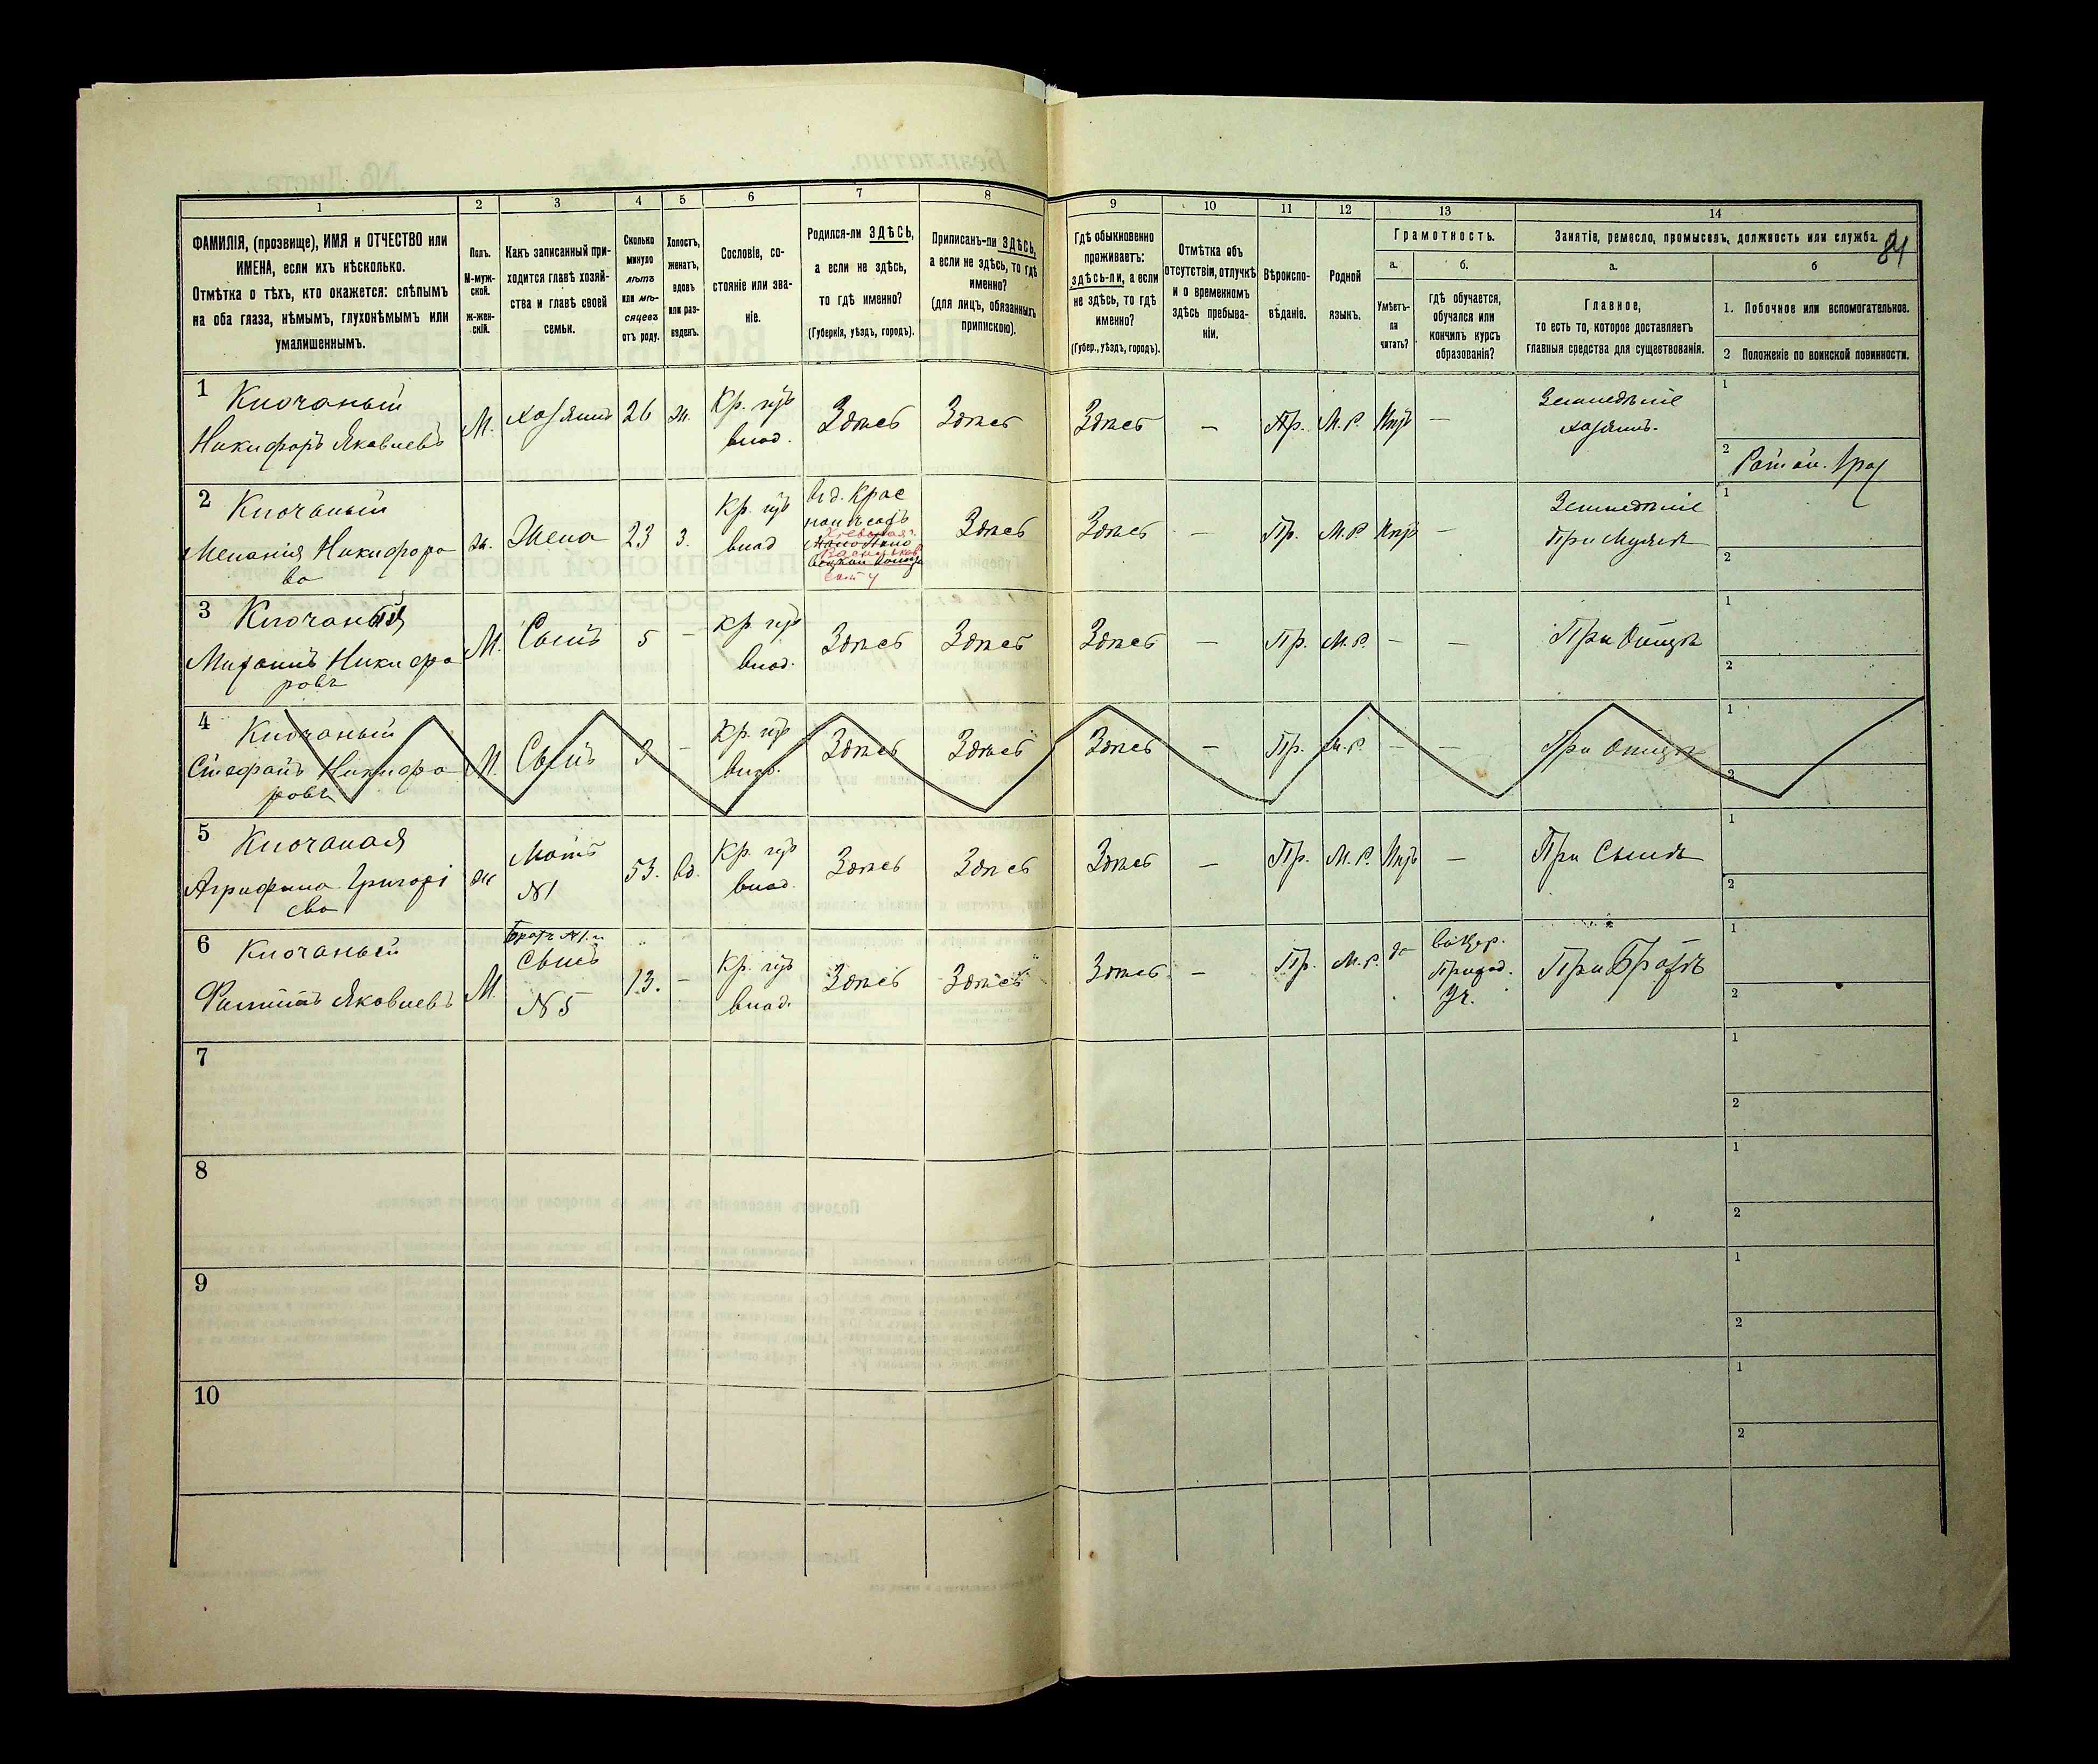 84
1 2 3 4 5 6 7 8 9 10 11 12 13 14
ФАМИЛІЯ, (прозвище), ИМЯ и ОТЧЕСТВО или
ИМЕНА, если ихъ нѣсколько.
Отмѣтка о тѣхъ, кто окажется: слѣпымъ
на оба глаза, нѣмымъ, глухонѣмымъ или
умалишеннымъ.
Полъ.
М-муж-
ской.
Ж-жен-
скій.
Какъ записанный при-
ходится главѣ хозяй-
ства и главѣ своей
семьи.
Сколько
минуло
лѣтъ
или мѣ-
сяцевъ
отъ роду.
Холостъ,
женатъ,
вдовъ
или раз-
веденъ.
Сословіе, со-
стояніе или зва-
ніе.
Родился-ли ЗДѢСЬ,
а если не здѣсь,
то гдѣ именно?
(Губернія, уѣздъ, городъ).
Приписанъ-ли ЗДѢСЬ,
а если не здѣсь, то гдѣ
именно?
(для лицъ, обязанныхъ
припискою).
Гдѣ обыкновенно
проживаетъ:
здѣсь-ли, а если
не здѣсь, то гдѣ
именно?
(Губер., уѣздъ, городъ).
Отмѣтка объ
отсутствіи, отлучкѣ
и о временномъ
здѣсь пребыва-
ніи.
Вѣроиспо-
вѣданіе.
Родной
языкъ.
Грамотность.
а.
Умѣетъ-
ли
читать?
б.
гдѣ обучается,
обучался или
кончилъ курсъ
образованія?
Занятіе, ремесло, промыселъ, должность или служба.
а.
Главное,
то есть то, которое доставляетъ
главныя средства для существованія.
б
1. Побочное или вспомогательное.
2 Положеніе по воинской повинности.
1 Клочаный
Никифоръ Яковлевъ
М. Хозяинъ 26 ж. Кр. губ
влад. Здѣсь Здѣсь Здѣсь — Пр. М. Р. Нѣтъ —
Земледѣліе
хозяинъ.
1
2
2 Клочаный
Меланія Никифоро
ва
ж. Жена 23 з.
влад
Здѣсь Здѣсь — Пр. М. Р. Нѣтъ —
Земледѣліе
При Мужѣ
1
2
3
Никифо
ровъ
М. Сынъ 5 —
влад. Здѣсь Здѣсь Здѣсь — Пр. М. Р. — — При Отцѣ
1
2
4 Клочаный
Стефанъ Никифо
ровъ
М. Сынъ 3 —
влад. Здѣсь Здѣсь Здѣсь — Пр. М. Р. — — При Отцѣ
1
2
5 Клочаная
Агрифина Григорі
ева
ж Мать
№1
53. вд.
влад. Здѣсь Здѣсь Здѣсь — Пр. М. Р. Нѣтъ — При Сынѣ
1
2
6 Клочаный
Филиппъ Яковлевъ
М.
Братъ №1. и
Сынъ
№5
13. —
влад. Здѣсь Здѣсь Здѣсь. — Пр. М. Р. да
въ Цер.
Приход.
Уч.
При Братѣ
1
2
7
1
2
8
1
2
9
1
2
10
1
2